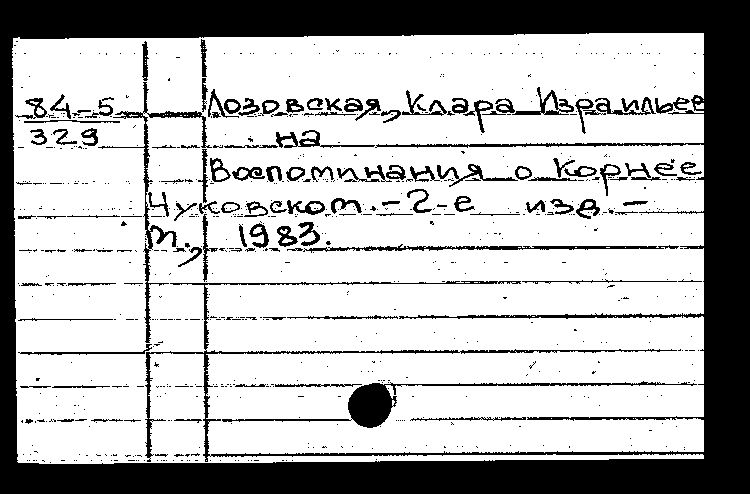 84-5 Лозовская, Клара Израильев
329 на
Воспоминания о Корнее
Чуковском. - 2-е изд. -
М., 1983.